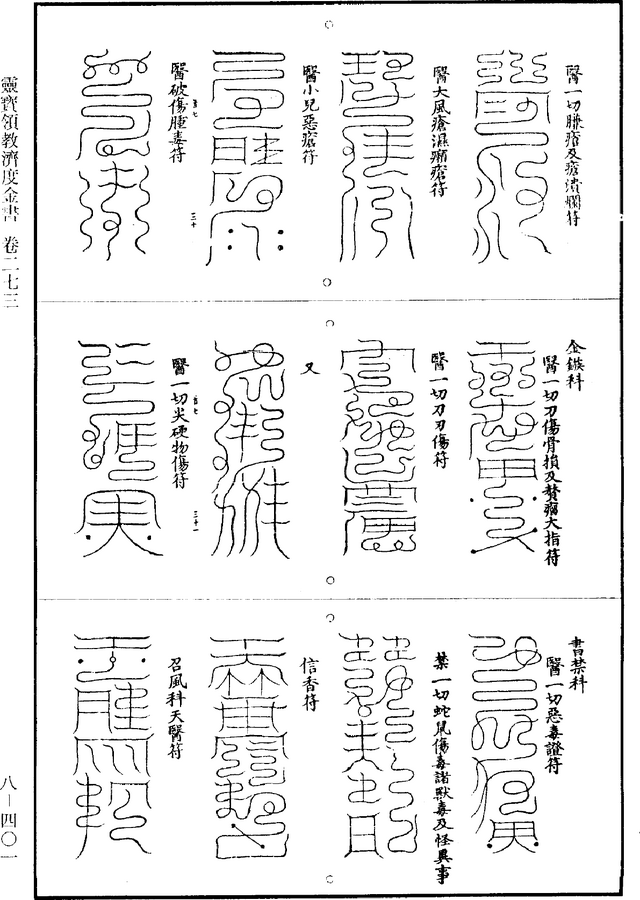 醫一切臁瘡及瘡潰爛符
醫大風瘡濕癩瘡符
醫小兒惡瘡符
醫破傷腫毒符
三十
金鏃科
醫一切刀傷骨損及
大指符
醫一切刀刃傷符
又
醫一切尖硬物傷符
三十一
書禁科
醫一切惡毒證符
禁一切蛇鼠傷毒諸獸毒及怪異事
信香符
召風科天醫符
靈寶領教濟度金書 卷二七三
八—四〇一